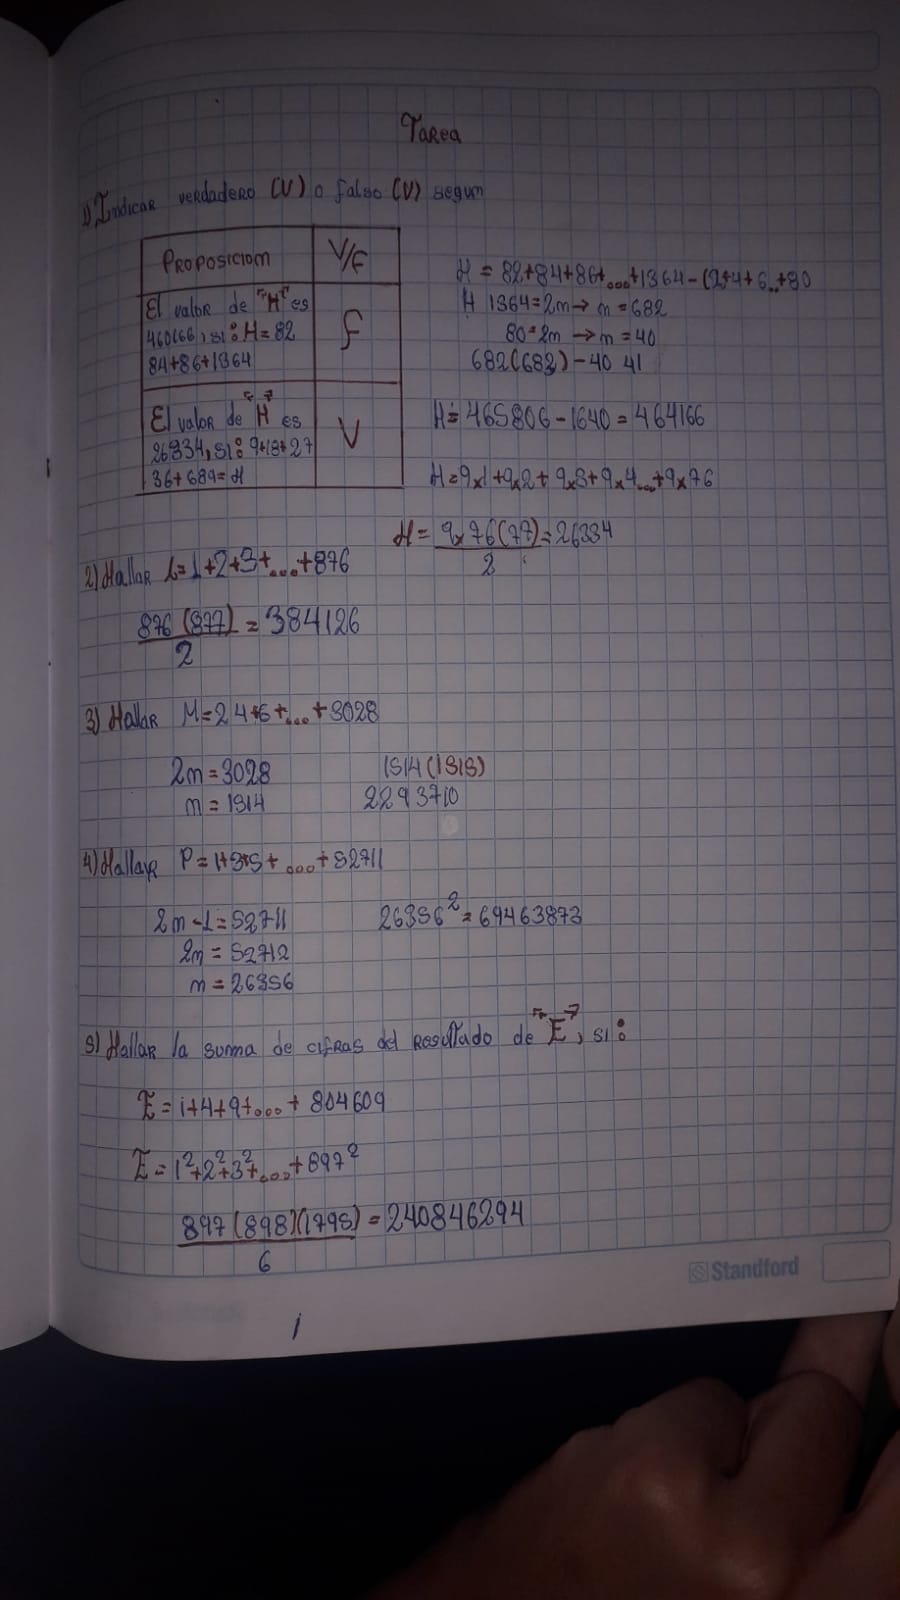 Tarea
1) Indicar verdadero (V) o falso (V) segun
Proposicion V/F
El valor de "H" es
460166, si: H = 82
84+86+1364
F
H = 82+84+86+...+1364-(2+4+6..+80
H 1364=2m→ m=682
80=2m →m=40
682(683)-40 41
H=465806-1640=464166
El valor de "H" es
26334, si: 9+18+27
36+684=H
V
H=9x1+9x2+9x3+9x4...+9x76
H= 9x76(77)=26334
2
2) Hallar L=1+2+3+...+876
876(877)=384126
2
3) Hallar M=2 4+6+...+3028
2m=3028
m=1514
1514(1515)
2293710
4) Hallar P=1+3+5+...+52711
2m-1=52711
2m=52712
m=26356
26356²=69463873
5) Hallar la suma de cifras del resultado de "E", si:
E=1+4+9+...+804609
E=1²+2²+3²+...+897²
897(898)(1795)=240846294
6
Standford